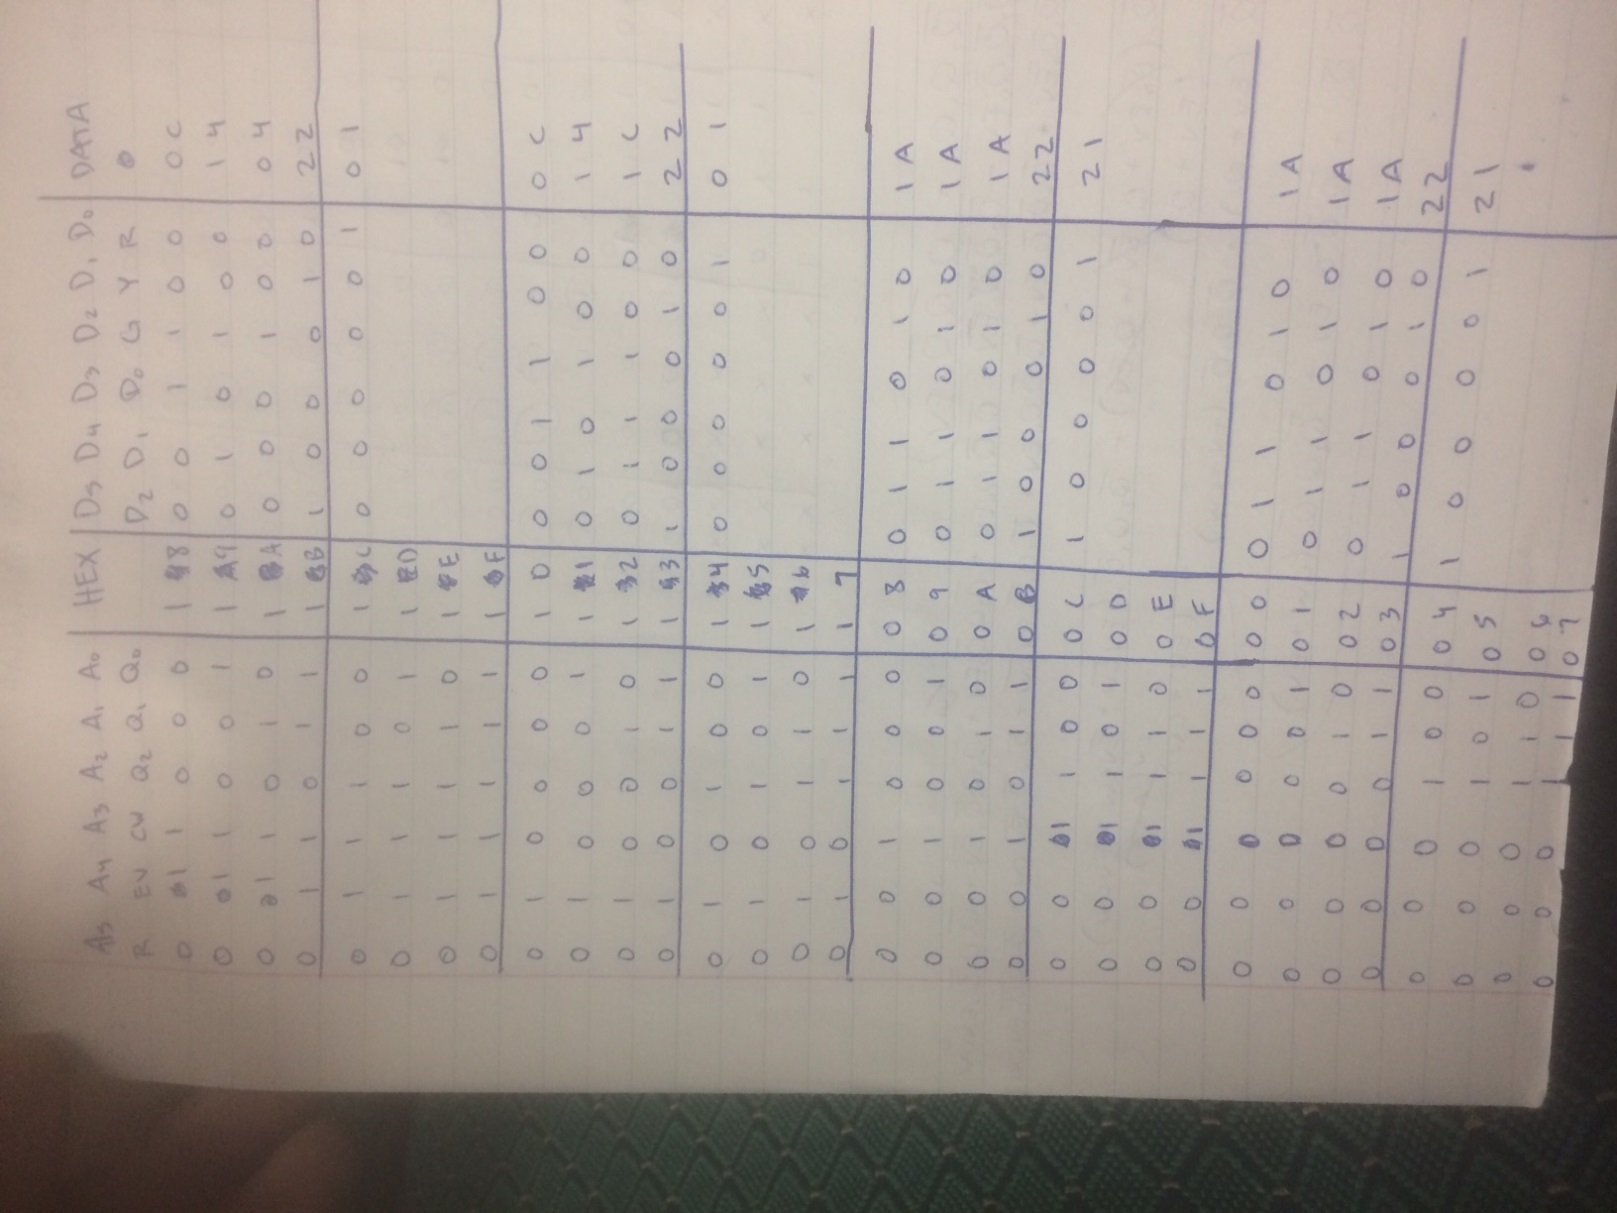 A5 A4 A3 A2 A1 A0 HEX D5 D4 D3 D2 D1 D0 DATA
R EV CV Q2 Q1 Q0 D2 D1 D0 G Y R
0 1 1 0 0 0 18 0 0 1 1 0 0 0C
0 1 1 0 0 1 19 0 1 0 1 0 0 14
0 1 1 0 1 0 1A 0 0 0 1 0 0 04
0 1 1 0 1 1 1B 1 0 0 0 1 0 22
0 1 1 1 0 0 1C 0 0 0 0 0 1 01
0 1 1 1 0 1 1D
0 1 1 1 1 0 1E
0 1 1 1 1 1 1F
0 1 0 0 0 0 10 0 0 1 1 0 0 0C
0 1 0 0 0 1 11 0 1 0 1 0 0 14
0 1 0 0 1 0 12 0 1 1 1 0 0 1C
0 1 0 0 1 1 13 1 0 0 0 1 0 22
0 1 0 1 0 0 14 0 0 0 0 0 1 01
0 1 0 1 0 1 15
0 1 0 1 1 0 16
0 1 0 1 1 1 17
0 0 1 0 0 0 08 0 1 1 0 1 0 1A
0 0 1 0 0 1 09 0 1 1 0 1 0 1A
0 0 1 0 1 0 0A 0 1 1 0 1 0 1A
0 0 1 0 1 1 0B 1 0 0 0 1 0 22
0 0 1 1 0 0 0C 1 0 0 0 0 1 21
0 0 1 1 0 1 0D
0 0 1 1 1 0 0E
0 0 1 1 1 1 0F
0 0 0 0 0 0 00 0 1 1 0 1 0 1A
0 0 0 0 0 1 01 0 1 1 0 1 0 1A
0 0 0 0 1 0 02 0 1 1 0 1 0 1A
0 0 0 0 1 1 03 1 0 0 0 1 0 22
0 0 0 1 0 0 04 1 0 0 0 0 1 21
0 0 0 1 0 1 05
0 0 0 1 1 0 06
0 0 0 1 1 1 07